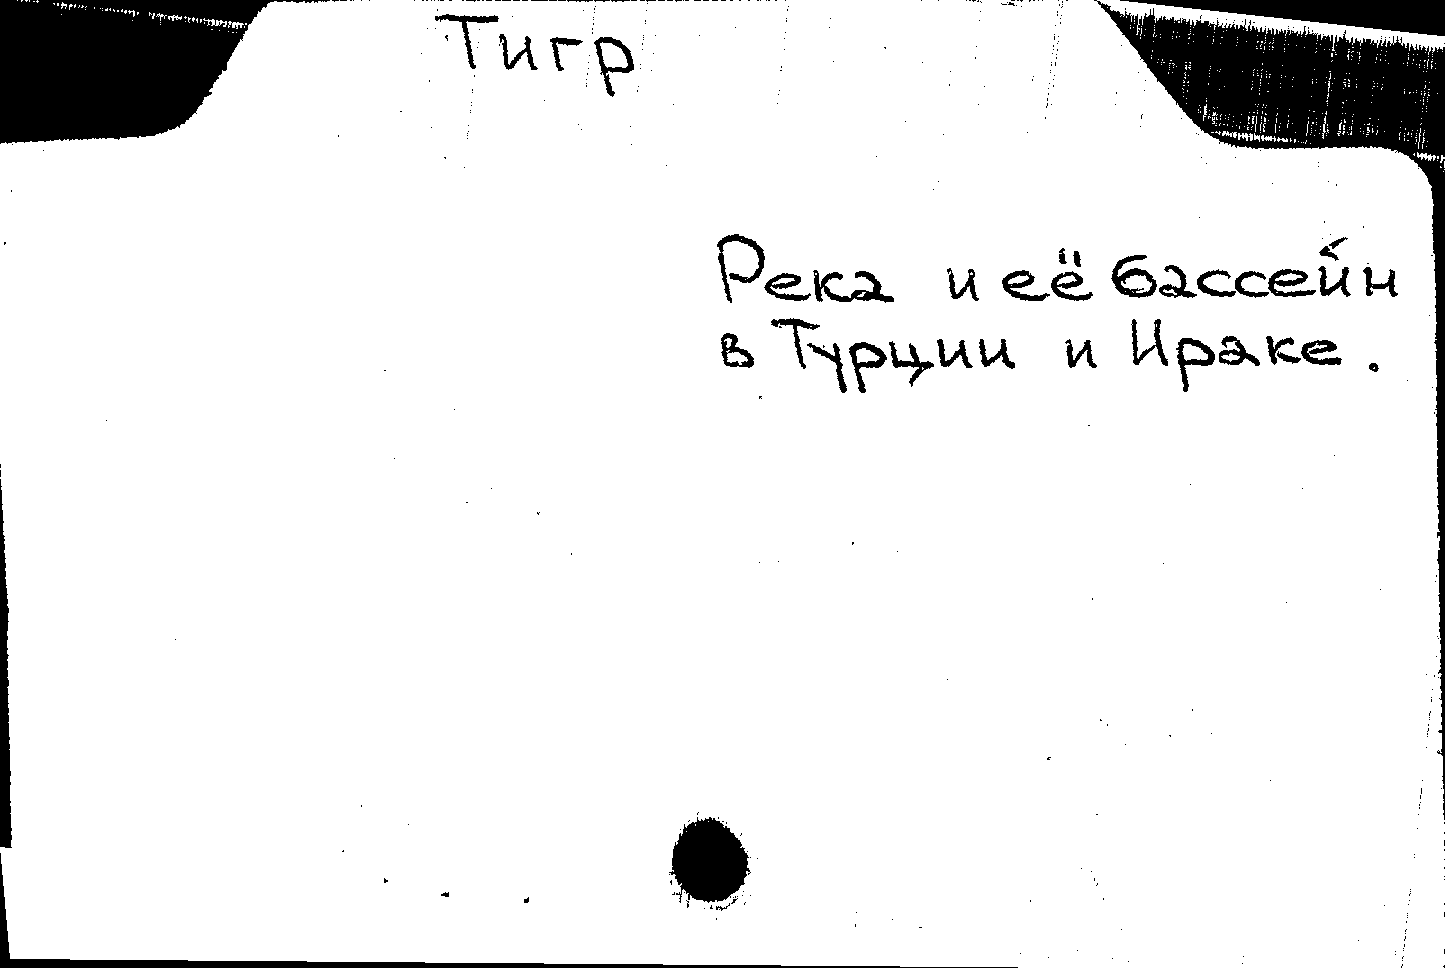 Тигр
Река и её бассейн
в Турции и Ираке.